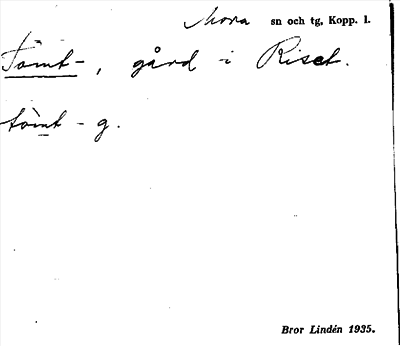 Mora sn och tg, Kopp. l.
Tomt-, gård i Riset.
tòmt - g.
Bror Lindén 1935.